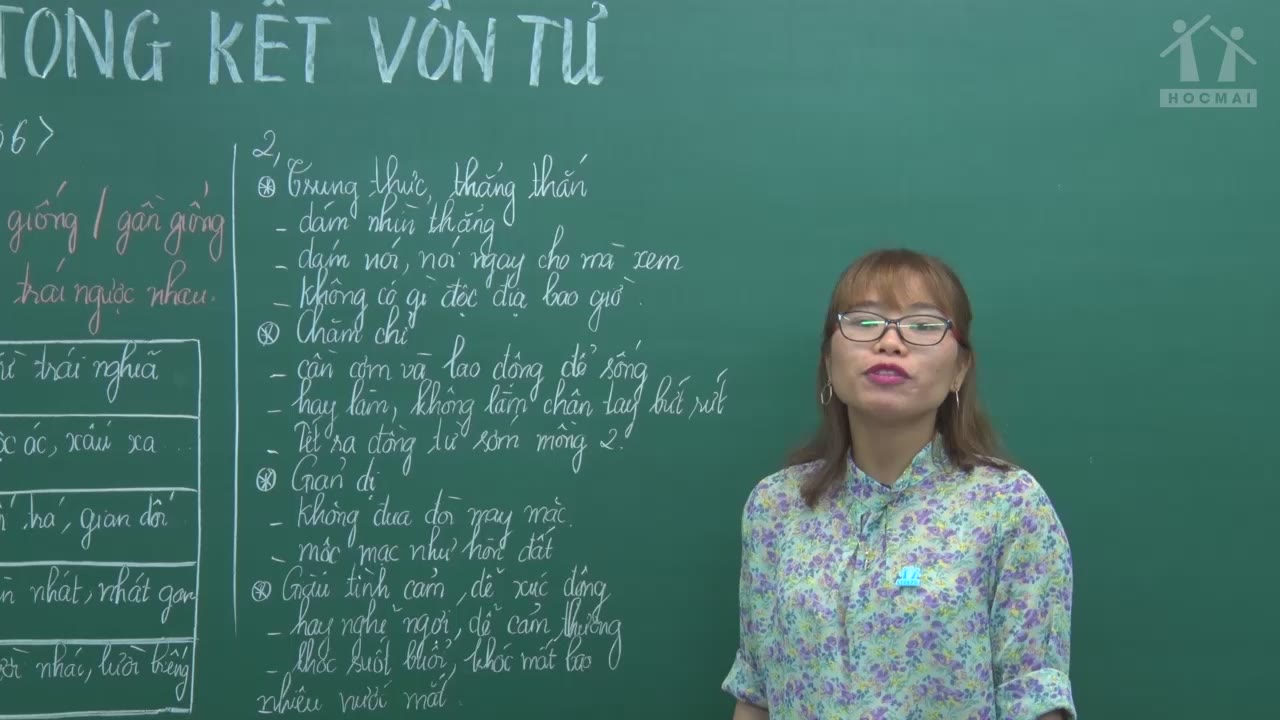 TỔNG KẾT VỐN TỪ
HOCMAI
6>
giống / gần giống
trái ngược nhau.
trái nghĩa
ác, xấu xa ...
trá, gian dối
nhát, nhát gan
nhác, lười biếng
2,
Trung thực, thẳng thắn
- dám nhìn thẳng
- dám nói, nói ngay cho mà xem
- không có gì độc địa bao giờ.
Chăm chỉ
- cần cơm và lao động để sống
- hay làm, không làm chân tay bứt rứt
- Tết ra đồng từ sớm mồng 2.
Giản dị
- không đua đòi may mặc.
- mộc mạc như hòn đất
Giàu tình cảm, dễ xúc động
- hay nghĩ ngợi, dễ cảm thương
- khóc suốt buổi, khóc mất bao
nhiêu nước mắt.